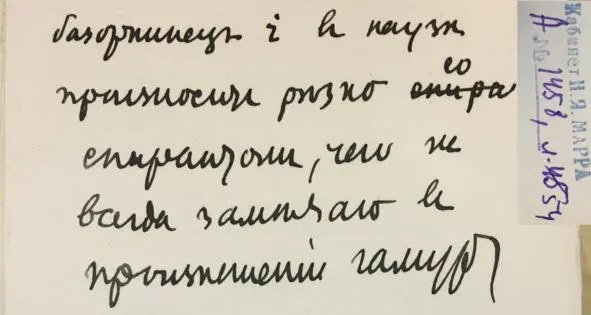 базоркинецъ i в
произносил рѣзко со спира
спирантом, чего не
всегда замѣчаю в
произношенiи
Кабинет Н.Я. МАРРА
А № 1458,